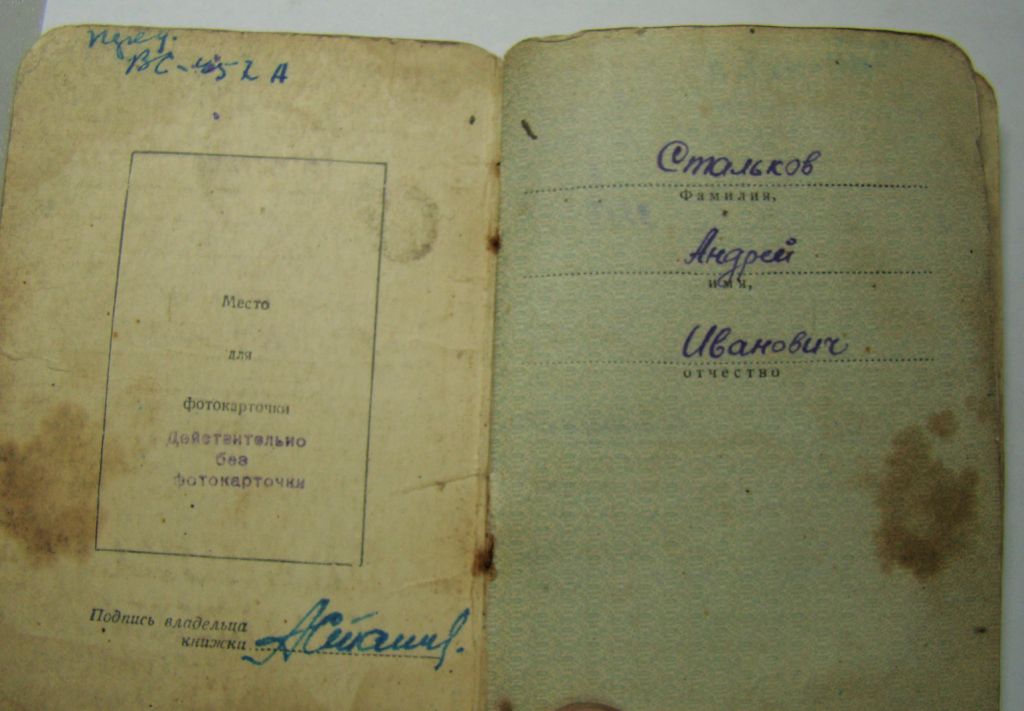 ВС-452 А
Место
для
фотокарточки
Действительно
без
фотокарточки
Подпись владельца
книжки
Стальков
Фамилия,
Андрей
имя,
Иванович
отчество